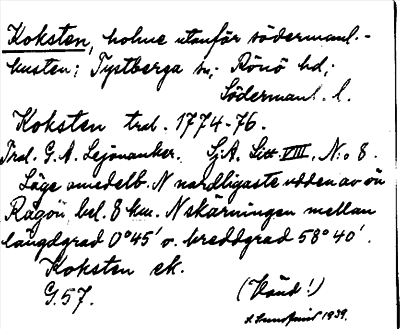 Koksten, holme utanför södermanl.-
kusten; Tystberga sn; Rönö hd;
Södermanl. l.
Koksten trol. 1774-76.
Trol. G. A. Lejonanker. Sj.A. Litt. VIII, N:o 8.
Läge omedelb. N nordligaste udden av ön
Rågön, bel. 8 km. N skärningen mellan
längdgrad 0°45' o. breddgrad 58°40'.
Koksten ek.
G.57.
(Vänd!)
1939.